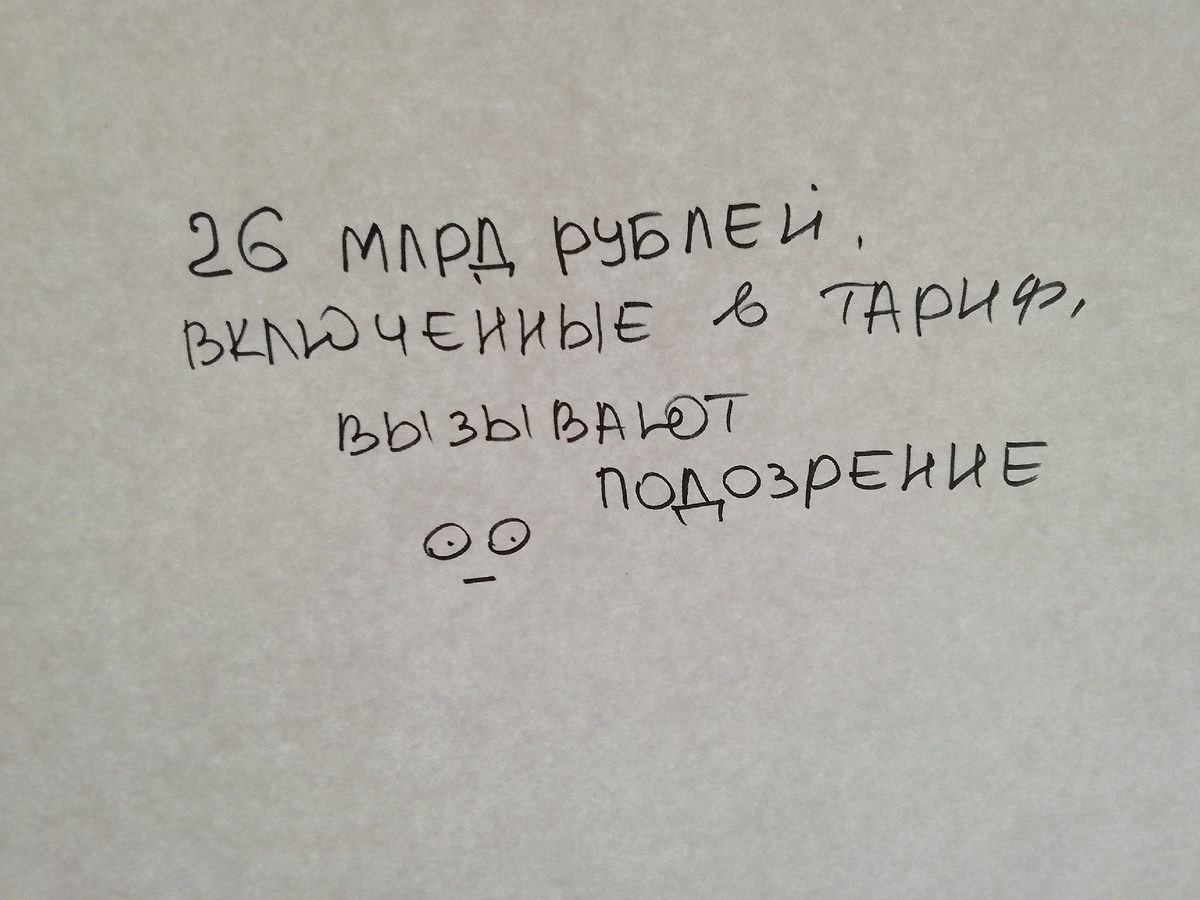 26 МЛРД РУБЛЕЙ,
ВКЛЮЧЕННЫЕ в ТАРИФ,
ВЫЗЫВАЮТ
ПОДОЗРЕНИЕ